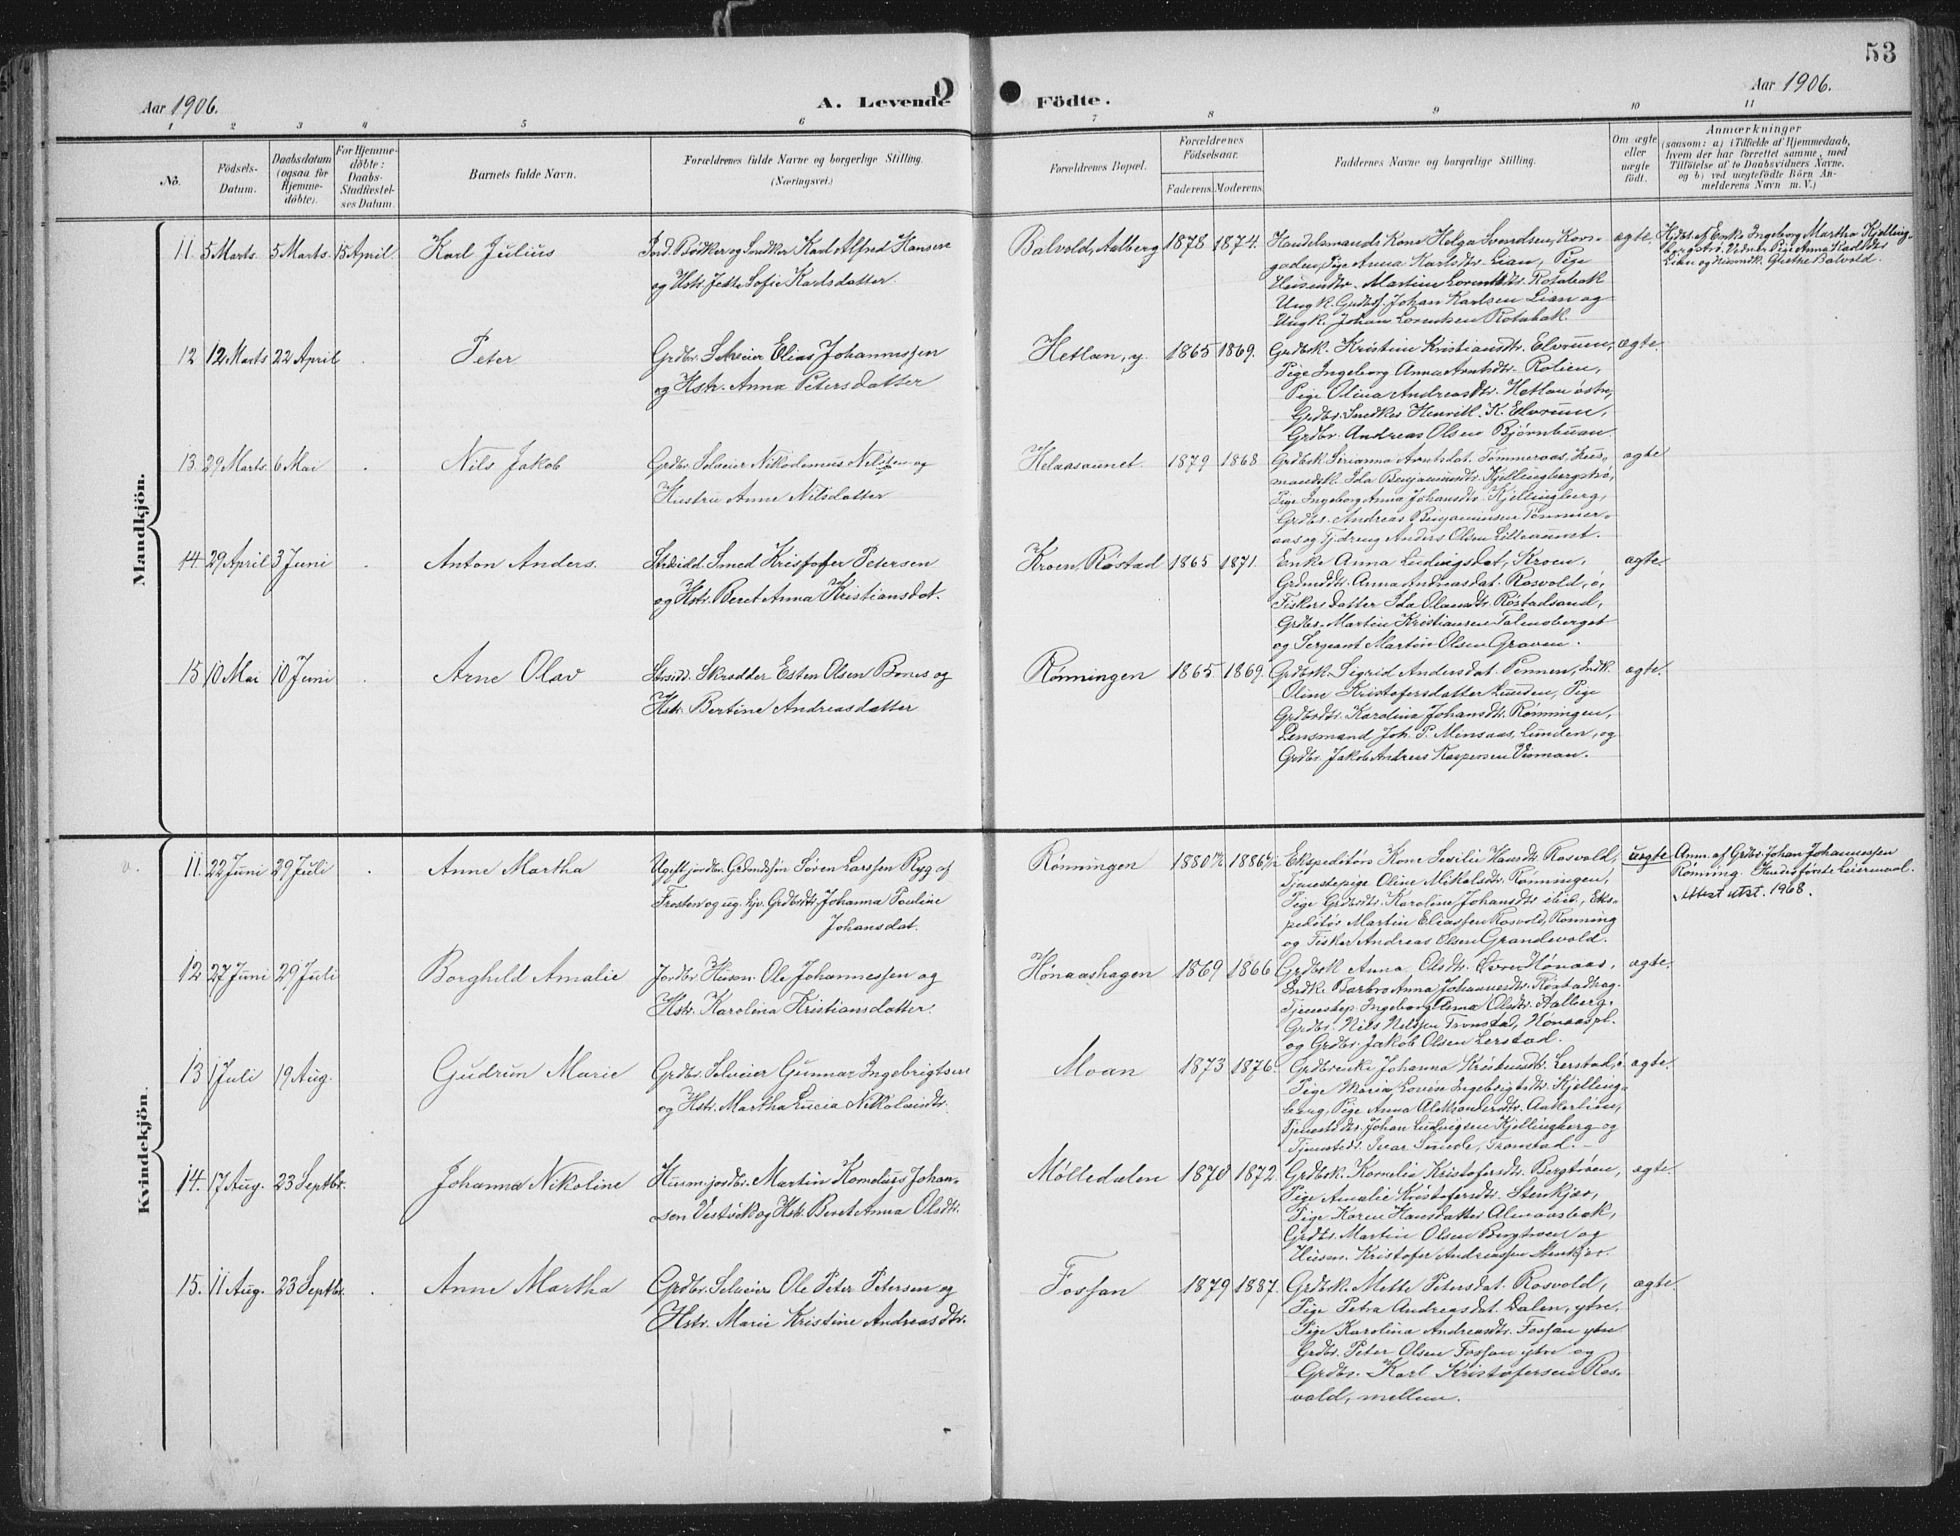 53
Aar 1906.
A. Levende
Födte.
Aar 1906.
1 2 3 4 5 6 7 8 9 10 11
No.
Födsels-
Datum.
Daabsdatum
(ogsaa for
Hjemme-
döbte).
For Hjemme-
döbte:
Daabs-
Stadfæstel-
ses Datum.
Barnets fulde Navn.
Forældrenes fulde Navne og borgerlige Stilling.
(Næringsvei.)
Forældrenes Bopæl.
Forældrenes
Födselsaar.
Faderens. Moderens.
Faddernes Navne og borgerlige Stilling.
Om ægte
eller
uægte
födt.
Anmærkninger
(saasom: a) i Tilfælde af Hjemmedaab,
hvem der har forrettet samme, med
Tilföielse af to Daabsvidners Navne,
og b) ved uægtefödte Börn An-
melderens Navn m. V.)
Mandkjön.
11. 5 Marts. 5 Marts. 15 April. Karl Julius
Jord. Bøkker og Snedker Karl Alfred Hansen
og Hstr. Jette Sofie Karlsdatter.
Balvold, Aalberg 1878 1874.
Handelsmands Kone Helga Svendsen, Kors-
gaden, Pige Anna Karlsdtr. Lian, Pige
Husmdtr. Martine Lorentsdtr. Rotabak
Ungk. Grdbrs. Johan Karlsen Lian og
Ungk. Johan Lorentsen Rotabak
ægte.
Hjdbt. af Enke Ingeborg Martha Kjelling-
bergstrø. Vidner Pige Anna Karlsdtr
Lian og Husmdk. Grethe Balvold.
12 12 Marts 22 April . Peter
Grdbr. Selveier Elias Johannessen
og Hstr. Anna Petersdatter
Hetlan, y. 1865 1869.
Grdbrk. Kristine Kristiansdtr. Elvrum,
Pige Ingeborg Anna Arntsdtr. Rolien,
Pige Olina Andreasdtr. Hetlan østre,
Grdbr. Snedker Henrik K. Elvrum,
Grdbr. Andreas Olsen Bjørnbuan.
ægte.
13. 29 Marts. 6 Mai . Nils Jakob
Grdbr. Selveier Nikodemus Nilsen og
Hustru Anne Nilsdatter
Helaasaunet. 1879 1868
Grdbrk Sirianna Arntsdat. Tømmeraas, Hus-
mandsk. Ida Benjaminsdtr. Kjellingbergstrø,
Pige Ingeborg Anna Johansdtr. Kjellingberg,
Grdbr. Andreas Benjaminsen Tømmer-
aas og Tjdreng Anders Olsen Lilleaunet.
ægte
14. 29 April 3 Juni . Anton Anders.
Strsidd. Smed Kristofer Petersen
og Hstr. Beret Anna Kristiansdat.
Kroen, Røstad 1865 1871.
Enke Anna Ludvigsdat, Kroen,
Grdmdtr. Anna Andreasdat. Rosvold, ø,
Fiskersdatter Ida Olausdtr. Røstadsand,
Grdbr. Martin Kristiansen Talmoberget
og Sergeant Martin Olsen Graven.
ægte.
15 10 Mai 10 Juni . Arne Olav
Strsidd. Skrædder Esten Olsen Bones og
Hstr. Bertine Andreasdatter
Rønningen 1865. 1869.
Grdbrk. Sigrid Andersdat. Pennen, Indk.
Oline Kristofersdatter Lunden, Pige
Grdbrdtr. Karolina Johansdtr. Rønningen,
Lensmand Joh. P. Mensaas, Lunden, og
Grdbr. Jakob Andreas Kaspersen Vioman.
ægte.
Kvindekjön.
11. 22 Juni 29 Juli . Anne Martha
Ugift jordbr. Grdmdssøn Søren Larssen Ryg af
Frosten og ug. hjv. Grdbrdtr. Johanna Pouline
Johansdat.
Rønningen 1880 1886
Ekspeditørs Kone Sesilie Hansdtr. Rosvold,
Tjenestepige Oline Mikalsdtr. Rønningen,
Pige Grdbrdtr. Karoline Johansdtr ibid., Eks-
peditør Martin Eliassen Rosvold, Rønning
og Fisker Andreas Olsen Grandevold.
uægte
Anm. af Grdbr. Johan Johannessen
Rønning. Hendes første Leiermaal.
Attest utst. 1968.
12 27 Juni 29 Juli Borghild Amalie
Jordbr. Husm. Ole Johannessen og
Hstr. Karolina Kristiansdatter.
Hønaashagen 1869 1866
Grdbrk Anna Olsdtr. Øvre Hønaas,
Indke Barbro Anna Johannesdtr. Røstadhag.
Tjenestep. Ingeborg Anna Olsdtr. Aalberg,
Grdbr. Nils Nilssen Tronstad, Hønaaspl.
og Grdbr. Jakob Olsen Lerstad.
ægte.
13 1 Juli 19 Aug. Gudrun Marie
Grdbr. Selveier Gunnar Ingebrigtsen
og Hstr. Martha Lucia Nikolaisdtr.
Moan 1873 1876.
Grdbrenke Johanna Kristiansdtr. Lerstad, ø
Pige Maria Lovise Ingebrigtsdtr. Kjelling-
berg, Pige Anna Aleksandersdtr. Aatlerlien,
Tjenestdr. Johan Ludvigsen Kjellingberg og
Tjenestedr. Ivar Sunde, Tronstad.
ægte.
14. 17 Aug. 23 Septbr. Johanna Nikoline
Husm. jordbr. Martin Kornelius Johan-
sen Vestvik og Hstr. Beret Anna Olsdtr.
Mølledalen 1870 1872.
Grdbrk. Kornelia Kristofersdtr. Bergtrøen,
Pige Amalie Kristofersdtr. Stenkjær,
Pige Karen Hansdatter Almaasbak,
Grdbr. Martin Olsen Bergtrøen og
Husm. Kristofer Andreassen Stenkjær.
ægte.
15. 11 Aug. 23 Septbr. . Anne Martha
Grdbr. Selveier Ole Peter Petersen og
Hstr. Marie Kristine Andreasdtr.
Fossan 1879 1887.
Grdbrk. Mette Petersdat. Rosvold,
Pige Petra Andreasdat. Dalen, ytre,
Pige Karolina Andreasdtr. Fossan ytre
Grdbr. Peter Olsen Fossan ytre og
Grdbr. Karl Kristofersen Ros-
vold, mellem.
ægte.